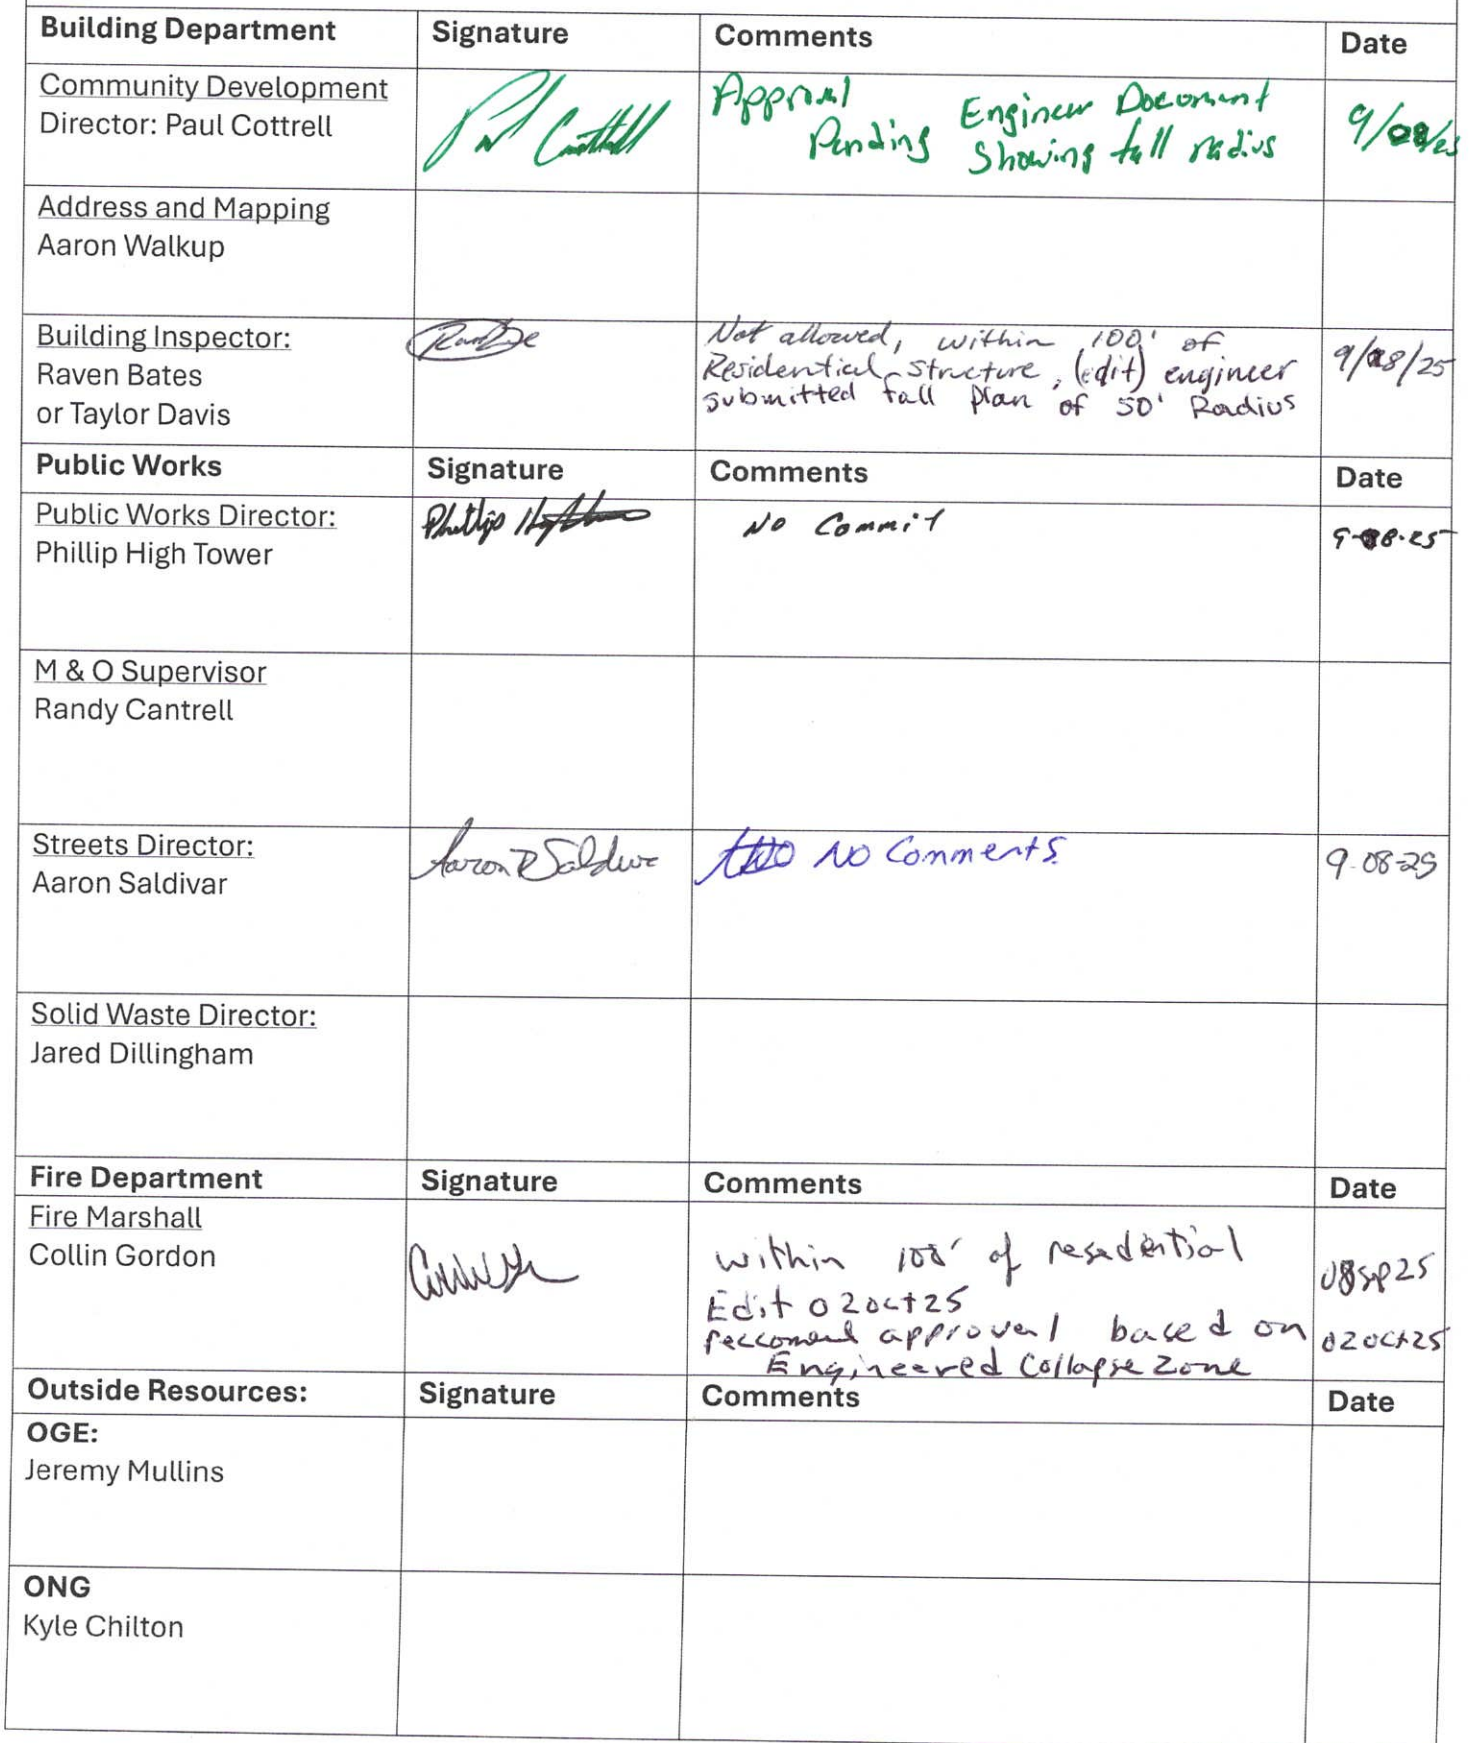 Building Department Signature Comments Date
Community Development
Director: Paul Cottrell
Paul Cottrell
Approval
Pending
Engineer Document
Showing fall radius
9/08/25
Address and Mapping
Aaron Walkup
Building Inspector:
Raven Bates
or Taylor Davis
Not allowed, within 100' of
Residential structure, (edit) engineer
submitted fall plan of 50' Radius
9/08/25
Public Works Signature Comments Date
Public Works Director:
Phillip High Tower
Phillip Hightower
No Commit
9-08-25
M & O Supervisor
Randy Cantrell
Streets Director:
Aaron Saldivar
Aaron D Saldivar
No Comments.
9-08-25
Solid Waste Director:
Jared Dillingham
Fire Department Signature Comments Date
Fire Marshall
Collin Gordon
within 100' of resedential
Edit 02Oct25
reccomend approval based on
Engineered Collapse Zone
08Sep25
02Oct25
Outside Resources: Signature Comments Date
OGE:
Jeremy Mullins
ONG
Kyle Chilton